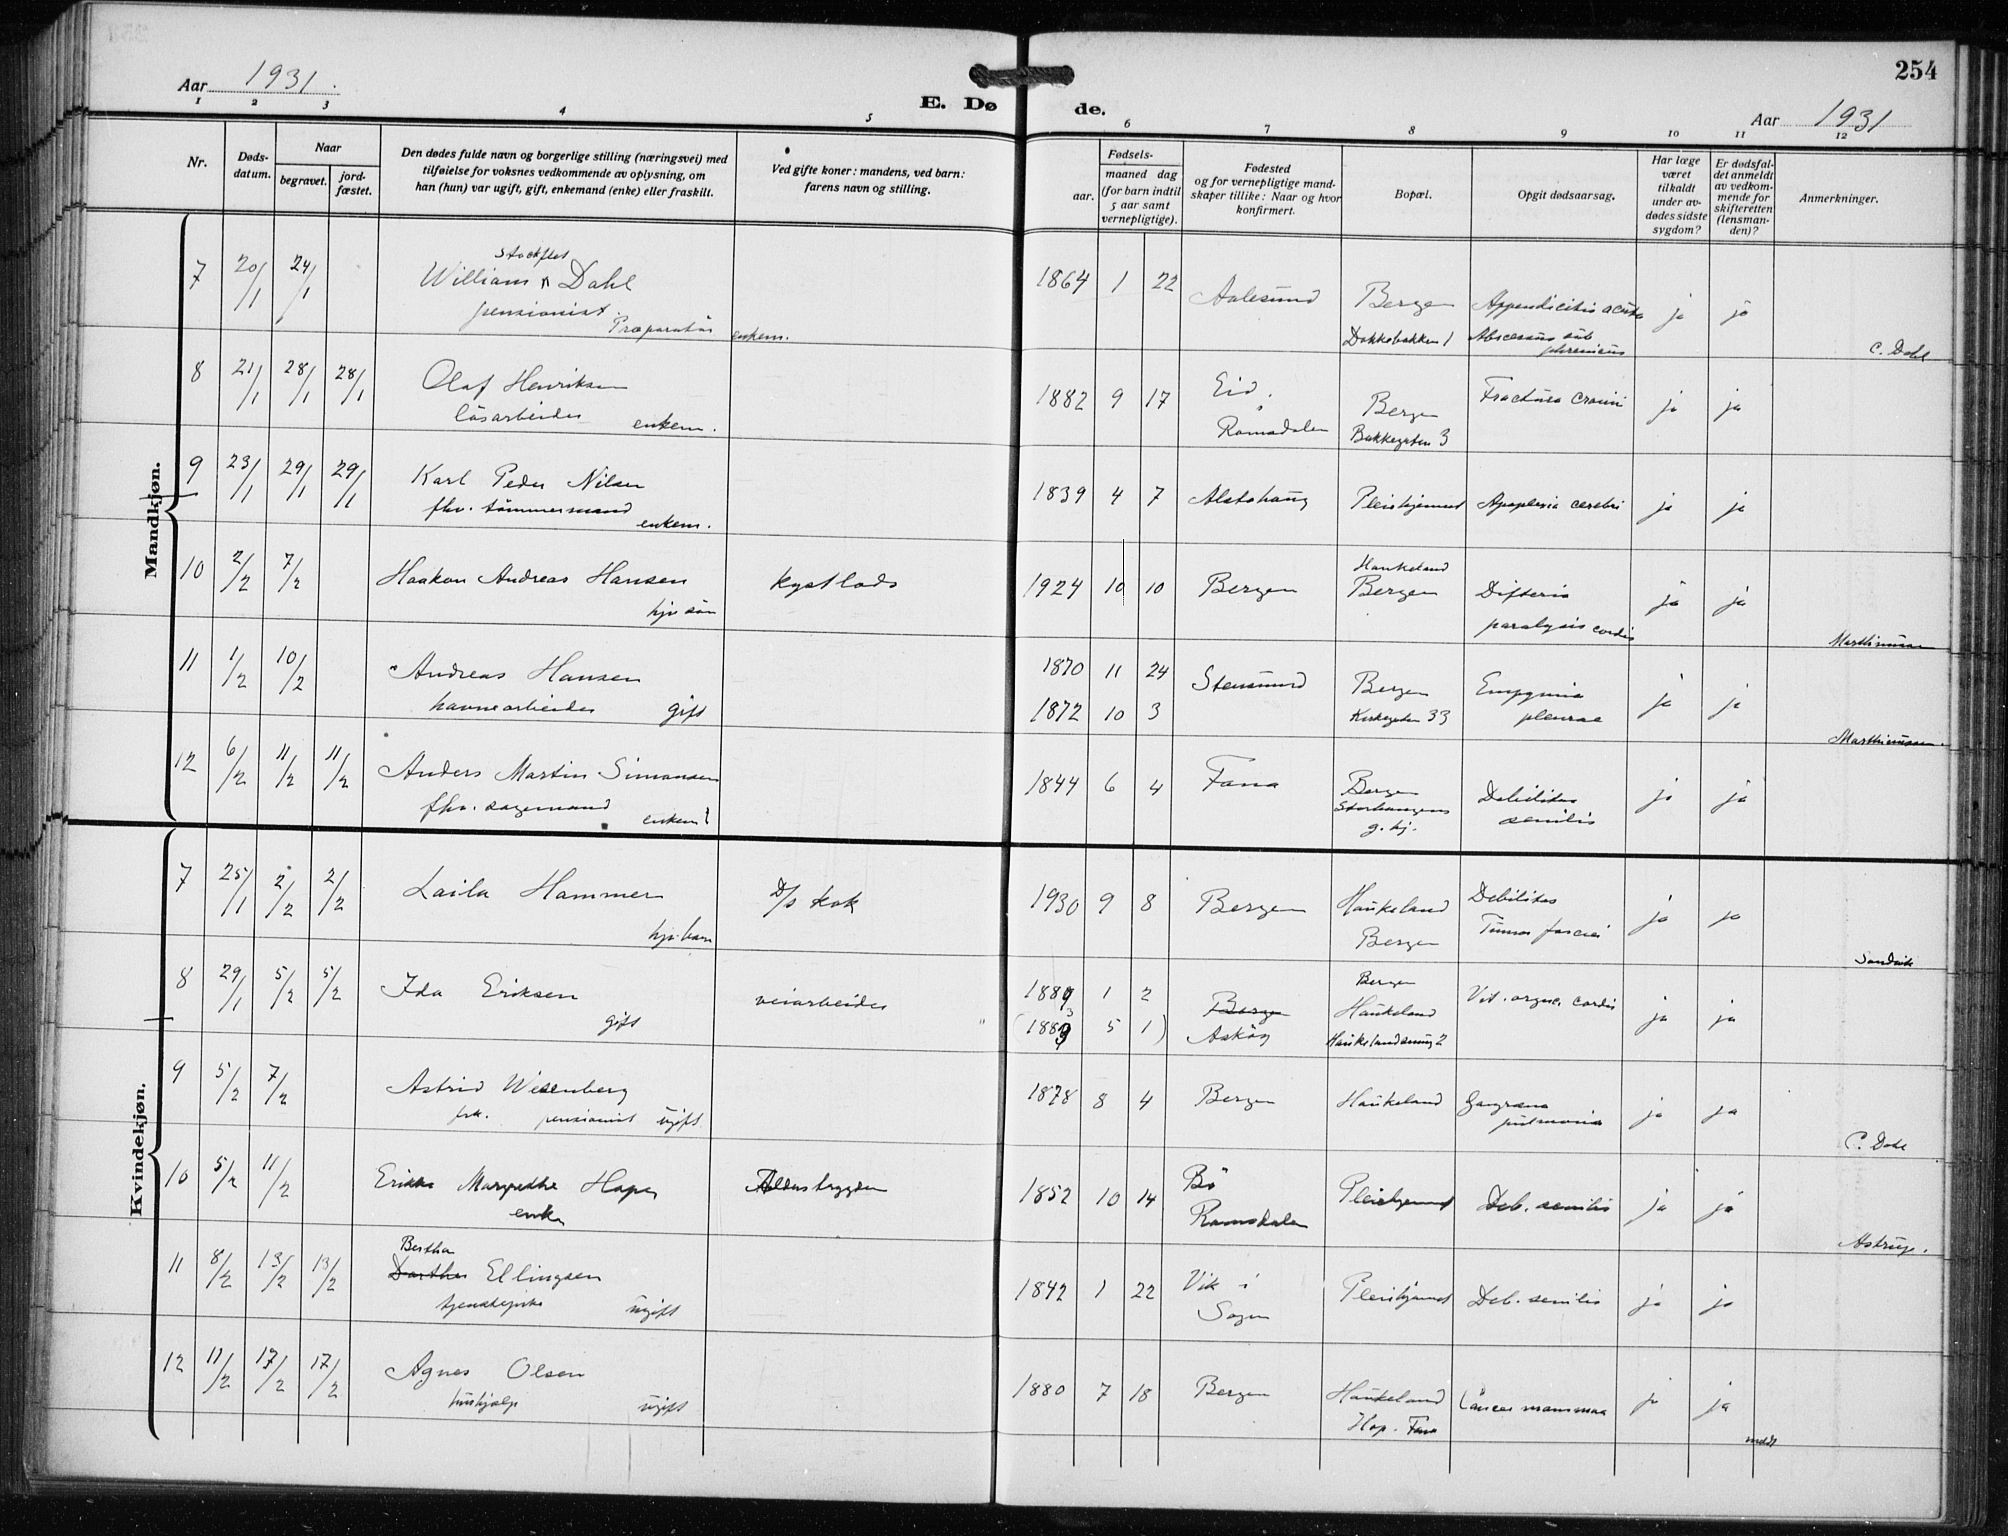 Aar 1931.
E. Døde.
254
Aar 1931
1 2 3 4 5 6 7 8 9 10 11 12
Nr.
Døds-datum.
Naar
begravet.
jord-fæstet.
Den dødes fulde navn og borgerlige stilling (næringsvei) med
tilføielse for voksnes vedkommende av oplysning, om
han (hun) var ugift, gift, enkemand (enke) eller fraskilt.
Ved gifte koner: mandens, ved barn:
farens navn og stilling.
Fødsels-
aar.
maaned dag
(for barn indtil
5 aar samt
vernepligtige).
Fødested
og for vernepligtige mand-
skaper tillike: Naar og hvor
konfirmert.
Bopæl.
Opgit dødsaarsag.
Har læge
været
tilkaldt
under av-
dødes sidste
sygdom?
Er dødsfal-
det anmeldt
av vedkom-
mende for
skifteretten
(lensman-
den)?
Anmerkninger.
Mandkjøn.
7 20/1 24/1 William Stockflet Dahl 1864 1 22 Aalesund Bergen Appendicitis acuta ja ja
pensionist. Præparatør enkem. Dokkebakken 1 Abscessus sub
phrenicus C. Dahl
8 21/1 28/1 28/1 Olaf Henriksen 1882 9 17 Eid. Bergen Fractura cranii ja ja
løsarbeider enkem. Romsdalen Bakkegaten 3
9 23/1 29/1 29/1 Karl Peder Nilsen 1839 4 7 Alstahaug Pleiehjemmet Apoplexia cerebri ja ja
fhv. tømmermand enkem.
10 2/2 7/2 Haakon Andreas Hansen kystlods 1924 10 10 Bergen Haukeland Bergen Difteria ja ja
hjs søn paralysis cordis Marthinussen
11 1/2 10/2 Andreas Hansen 1870 11 24 Stensund Bergen Empyema ja ja
havnearbeider gift 1872 10 3 Kirkegaten 33 pleurae Marthinussen.
12 6/2 11/2 11/2 Anders Martin Simonsen 1844 6 4 Fana Bergen Debilitas ja ja
fhv. sagemand enkem? Storhaugens senilis
g. hj.
Kvindekjøn.
7 25/1 2/2 2/2 Laila Hammer D/s kok 1930 9 8 Bergen Haukeland Debilitas ja ja
hjs. barn Bergen Tumor faciei Sandvik
8 29/1 5/2 5/2 Ida Eriksen veiarbeider 1889 1 2 Bergen Bergen Haukeland Vit. organ. cordis ja ja
gift (1883 5 1) Askøy Haukelandsveug 2
9 5/2 7/2 Astrid Wesenberg 1878 8 4 Bergen Haukeland Gangræna ja ja
frk. pensionist ugift pulmonis C. Dahl
10 5/2 11/2 Erikka Margrethe Hope Aldersbygden 1852 10 14 Bö Pleiehjemmet Deb. senilis ja ja
enke Romsdalen Astrup.
11 8/2 13/2 13/2 Bertha Dorthea Ellingsen 1842 1 22 Vik i Pleiehjemmet Deb. senilis ja ja
tjenestepike ugift Sogn
12 11/2 17/2 17/2 Agnes Olsen 1880 7 18 Bergen Haukeland Cancer mammae ja ja
hushjælp ugift Hop. Fana meldt